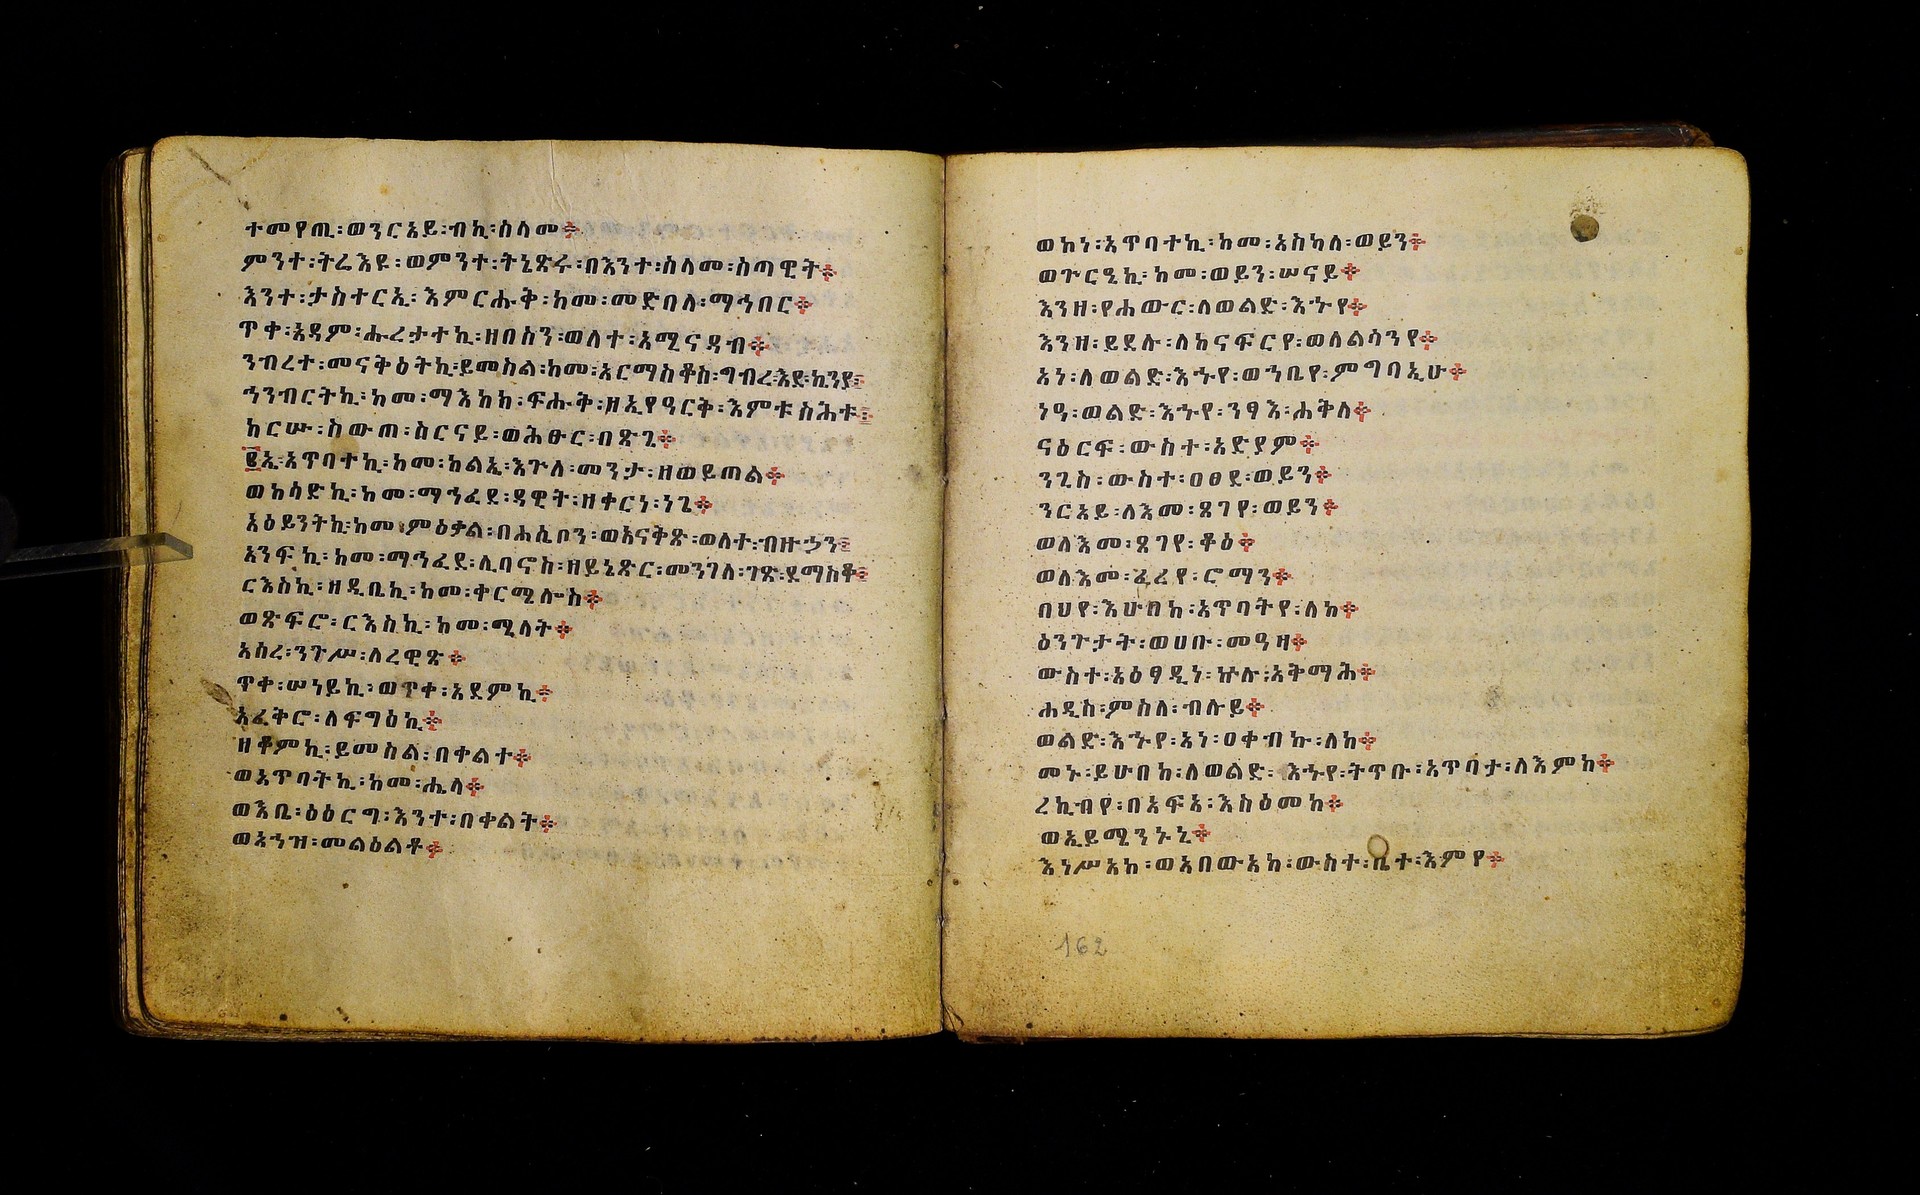 ተመየጢ፡ወንርአይ፡ብኪ፡ሰላመ፨
ምንተ፡ትሬእዩ፡ወምንተ፡ትኔጽሩ፡በእንተ፡ሰላመ፡ሰጣዊት፨
እንተ፡ታስተርኢ፡እምርሑቅ፡ከመ፡መድበለ፡ማኅበር፨
ጥቀ፡አዳም፡ሑረታተኪ፡ዘበሰን፡ወለተ፡አሚናዳብ፨
ንብረተ፡መናቅዕትኪ፡ይመስል፡ከመ፡አርማስቆስ፡ግብረ፡እደ፡ኬንያ፨
ኅንብርትኪ፡ከመ፡ማእከከ፡ፍሑቅ፡ዘኢየዓርቅ፡እምቱስሕት፨
ከርሡ፡ሰውጠ፡ስርናይ፡ወሕፁር፡በጽጌ፨
፪ኢ፡አጥባተኪ፡ከመ፡ከልኢ፡እጕለ፡መንታ፡ዘወይጠል፨
ወክሳድኪ፡ከመ፡ማኅፈደ፡ዳዊት፡ዘቀርነ፡ነጌ፨
አዕይንትኪ፡ከመ፡ምዕቃል፡በሐሴቦን፡ወአናቅጽ፡ወለተ፡ብዙኃን፨
አንፍኪ፡ከመ፡ማኅፈደ፡ሊባኖስ፡ዘይኔጽር፡መንገለ፡ገጽ፡ደማስቆ፨
ርእስኪ፡ዘዲቤኪ፡ከመ፡ቀርሜሎስ፨
ወጽፍሮ፡ርእስኪ፡ከመ፡ሜላት፨
አስረ፡ንጉሥ፡ለረዊጽ፨
ጥቀ፡ሠነይኪ፡ወጥቀ፡አደምኪ፨
አፈቅሮ፡ለፍግዕኪ፨
ዘቆምኪ፡ይመስል፡በቀልተ፨
ወአጥባትኪ፡ከመ፡ሔላ፨
ወእቤ፡ዕዕርግ፡እንተ፡በቀልት፨
ወአኀዝ፡መልዕልቶ፨
ወከነ፡አጥባተኪ፡ከመ፡አስካለ፡ወይን፨
ወጕርዔኪ፡ከመ፡ወይን፡ሠናይ፨
እንዘ፡የሐውር፡ለወልድ፡እኁየ፨
እንዘ፡ይደሉ፡ለከናፍርየ፡ወለልሳንየ፨
አነ፡ለወልድ፡እኁየ፡ወኀቤየ፡ምግባኢሁ፨
ነዓ፡ወልድ፡እኁየ፡ንፃእ፡ሐቅለ፨
ናዕርፍ፡ውስተ፡አድያም፨
ንጊስ፡ውስተ፡ዐፀደ፡ወይን፨
ንርአይ፡ለእመ፡ጸገየ፡ወይን፨
ወለእመ፡ጸገየ፡ቆዕ፨
ወለእመ፡ፈረየ፡ሮማን፨
በህየ፡እሁበከ፡አጥባትየ፡ለከ፨
ዕንጕታት፡ወሀቡ፡መዓዛ፨
ውስተ፡አዕፃዲነ፡ኵሉ፡አቅማሕ፨
ሐዲስ፡ምስለ፡ብሉይ፨
ወልድ፡እኁየ፡አነ፡ዐቀብኩ፡ለከ፨
መኑ፡ይሁበከ፡ለወልድ፡እኁየ፡ትጥቡ፡አጥባታ፡ለእምከ፨
ረኪብየ፡በአፍአ፡እስዕመከ፨
ወኢይሜንኑኒ፨
እነሥአከ፡ወአበውአከ፡ውስተ፡ቤተ፡እምየ፨
162